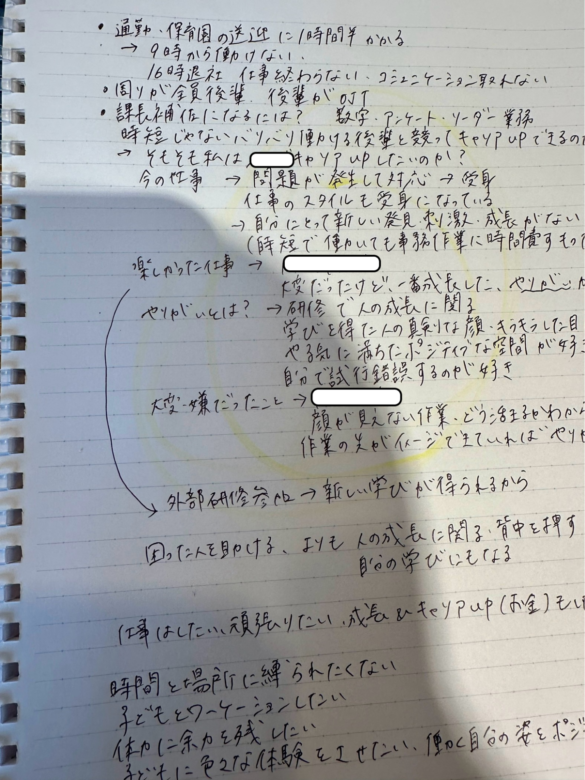 ・通勤・保育園の送迎に1時間半かかる
→ 9時から働けない.
16時退社 仕事終わらない.コミュニケーション取れない
・周りが全員後輩 後輩がOJT
・課長補佐になるには? 数字・アンケート・リーダー業務
時短じゃないバリバリ働ける後輩と競ってキャリアupできるの
→ そもそも私は キャリアupしたいのか?
今の仕事 → 問題が発生して対応 → 受身
仕事のスタイルも受身になっている
→ 自分にとって新しい発見・刺激・成長がない
(時短で働いても事務作業に時間費すもって
楽しかった仕事 →
大変だったけど、一番成長した、やりがい
やりがいとは? → 研修で人の成長に関る
学びを得た人の真剣な顔・キラキラした目
やる気に満ちたポジティブな空間が好き
自分で試行錯誤するのが好き
大変・嫌だったこと →
顔が見えない作業・どう活きるかわから
作業の先がイメージできていればやりが
外部研修参加 → 新しい学びが得られるから
困った人を助ける、よりも 人の成長に関る・背中を押す
自分の学びにもなる
仕事はしたい、頑張りたい、成長&キャリアup(お金)もし
時間と場所に縛られたくない
子どもとワーケーションしたい
体力に余力を残したい
子どもに色々な体験をさせたい、働く自分の姿をポジ